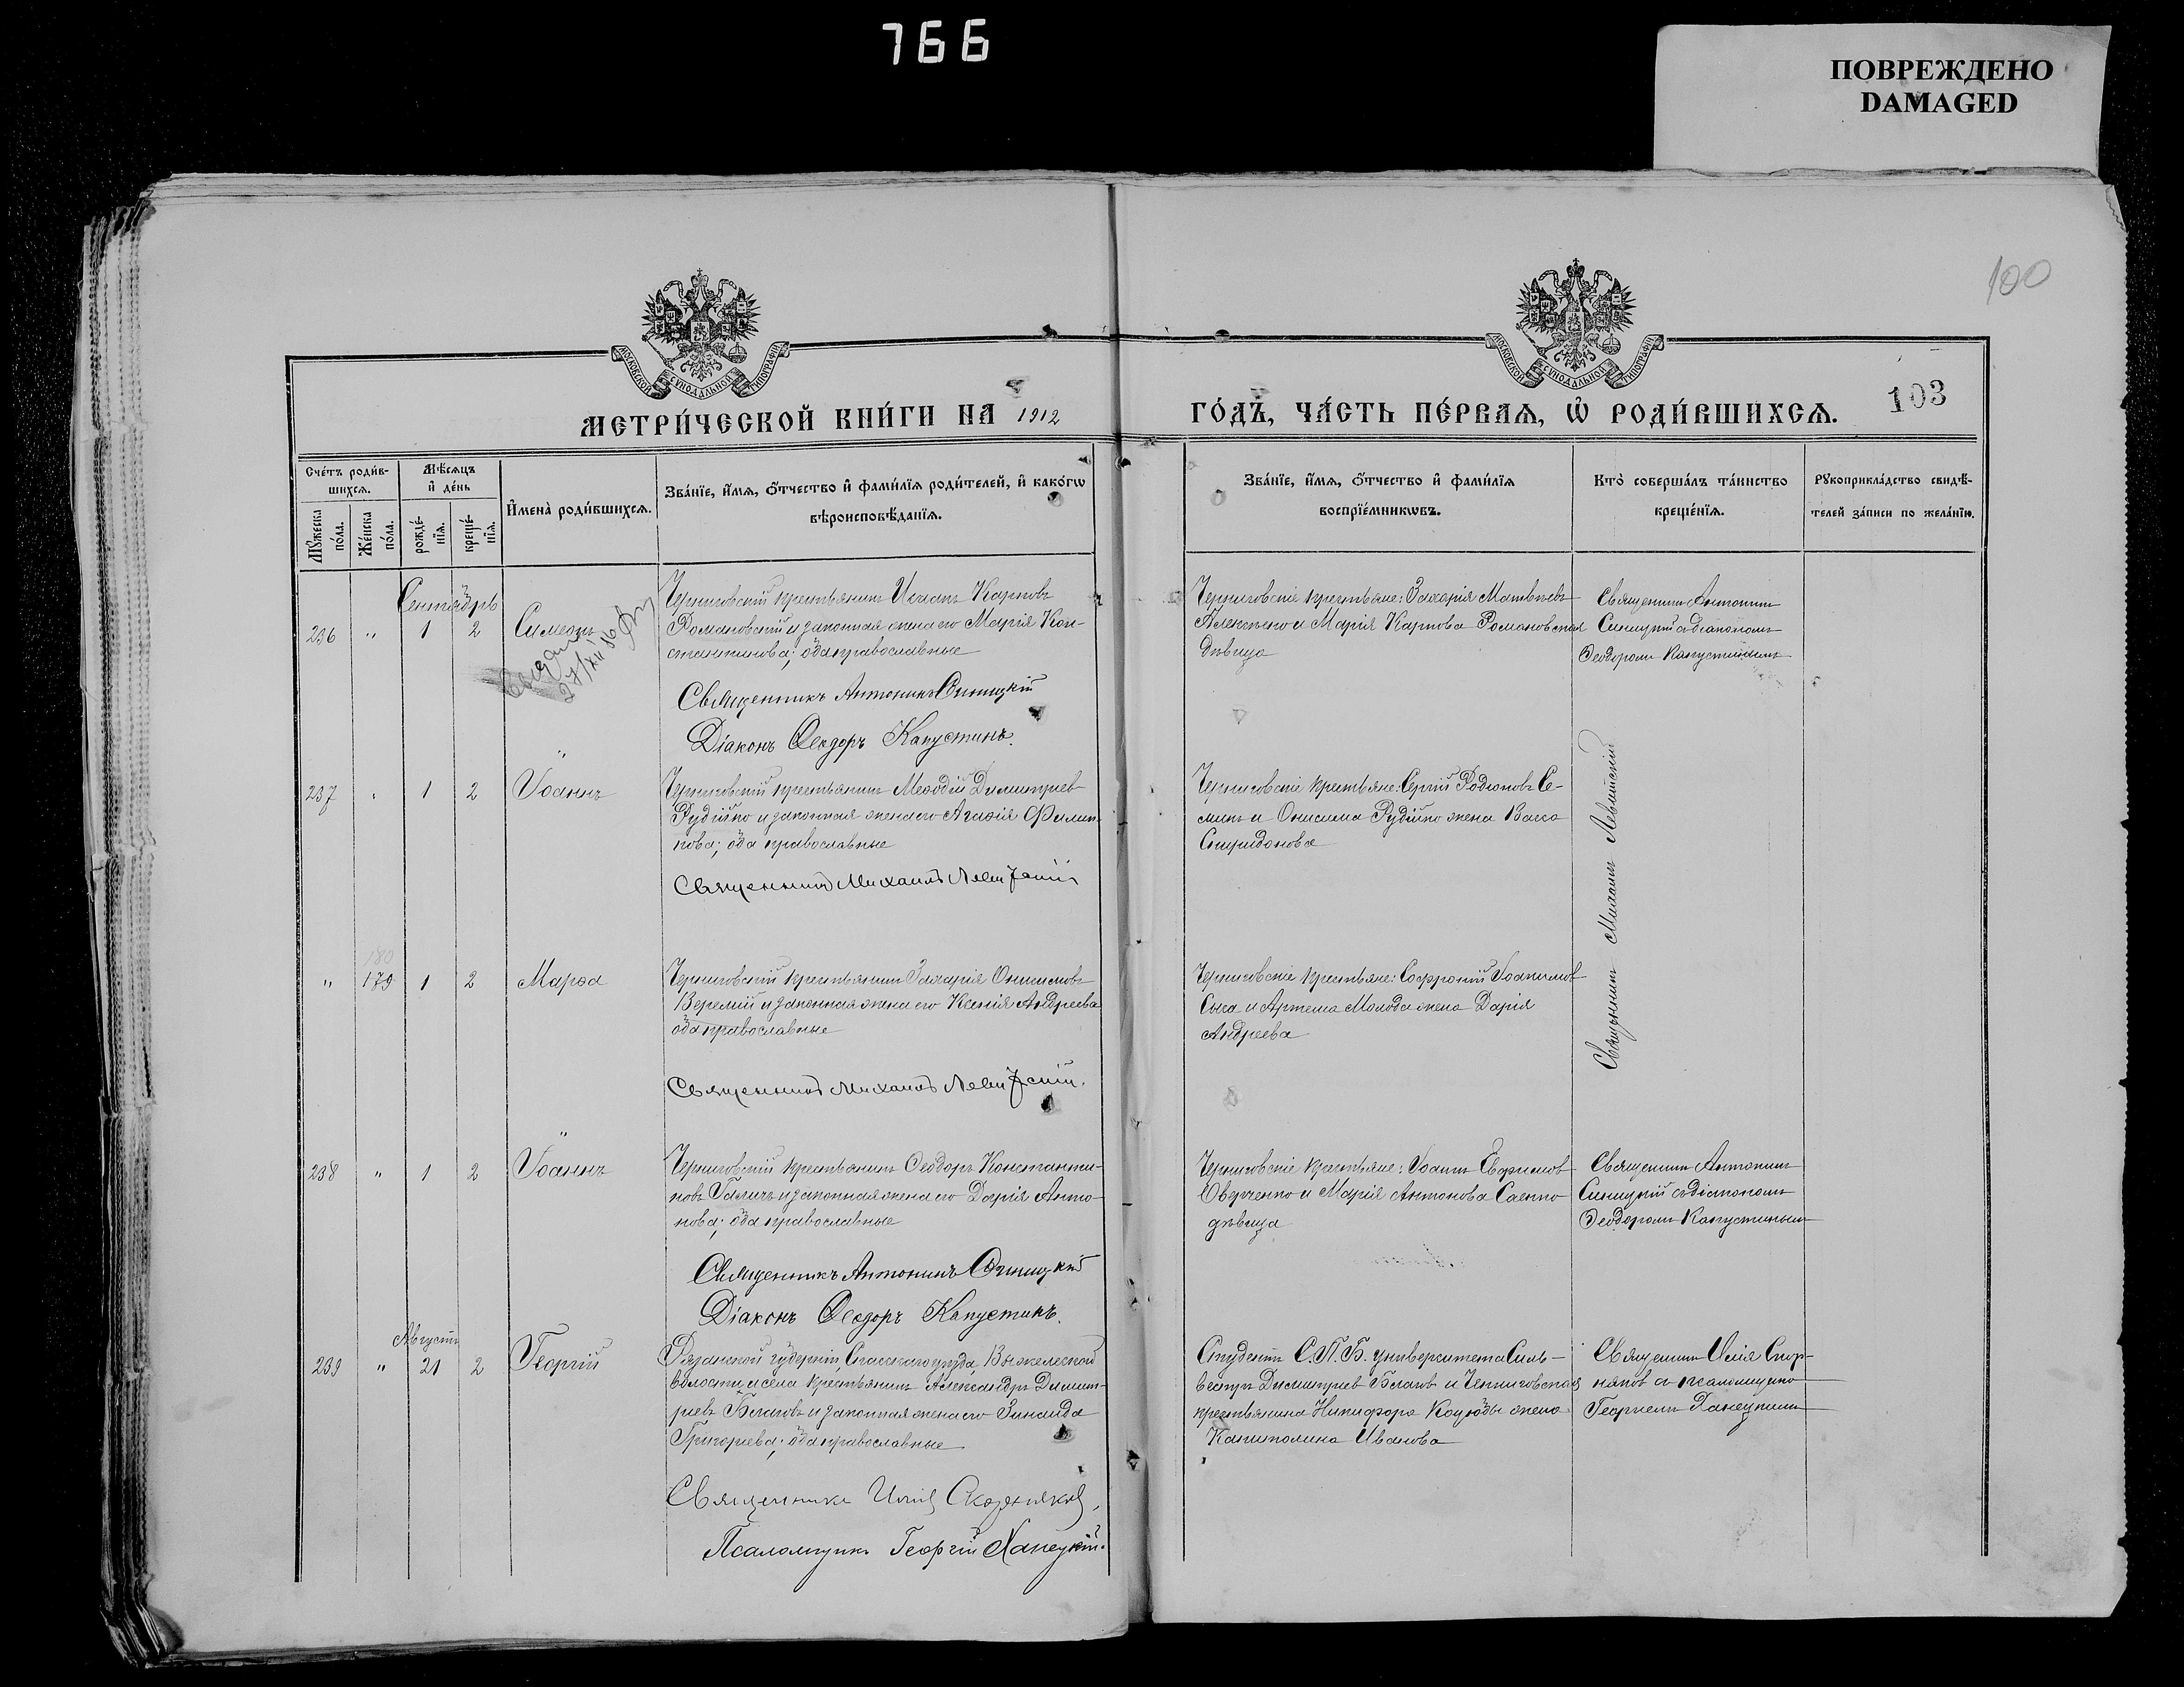 766
ПОВРЕЖДЕНО
DAMAGED
100
МОСКОВСКОЙ СУНОДАЛЬНОЙ ТИПОГРАФІИ
МОСКОВСКОЙ СУНОДАЛЬНОЙ ТИПОГРАФІИ
МЕТРИ́ЧЕСКОЙ КНИ́ГИ НА 1912
ГО́ДЪ, ЧА́СТЬ ПЕ́РВАѦ, Ѡ҆ РОДИ́ВШИХСѦ.
103
Сче́тъ роди́в-
шихсѧ.
Мѣ́сѧцъ
и҆ де́нь
Мꙋ́жеска по́ла.
Же́нска по́ла.
рожде́-
нїѧ.
креще́-
нїѧ.
И҆мена̀ роди́вшихсѧ.
Зва́нїе, и҆́мѧ, ѻ҆́тчество и҆ фами́лїѧ роди́телей, и҆ како́гѡ
вѣроисповѣ́данїѧ.
Зва́нїе, и҆́мѧ, ѻ҆́тчество и҆ фами́лїѧ
воспрїе́мникѡвъ.
Кто̀ соверша́лъ та́инство
креще́нїѧ.
Рꙋкоприкла́дство свидѣ́-
телей за́писи по жела́нїю.
Сентябрь
236 " 1 2 Симеонъ
Черниговскій крестьянинъ Карповъ
Романовскій и законная жена его Марія Кон-
стантинова; оба православные
Священникъ Антонинъ Синицкій
Діаконъ Ѳеодоръ Капустинъ.
Черниговскіе крестьяне: Захарія Матвѣевъ
и Марія Карпова Романовская
дѣвица
Священникъ Антонинъ
Синицкій съ діакономъ
Ѳеодоромъ Капустинымъ
237 " 1 2 Іоаннъ
Черниговскій крестьянинъ Меѳодій Димитріев
и законная жена его Агаѳія Филип-
пова; оба православные
Священникъ Михаилъ Левитскій
Черниговскіе крестьяне: Сергій Родіоновъ Се-
минъ и Онисима жена Васса
Спиридонова
Священникъ Михаилъ Левитскій
180
" 179 1 2 Марѳа
Черниговскій крестьянинъ Захарія Онисимовъ
Веремій и законная жена его Ксенія Андреева
оба православные
Священникъ Михаилъ Левитскій.
Черниговскіе крестьяне: Софроній Іоакимов
и Артема Молода жена Дарія
Андреева
238 " 1 2 Іоаннъ
Черниговскій крестьянинъ Ѳеодоръ Константи-
новъ и законная жена его Дарія Анто-
нова; оба православные
Священникъ Антонинъ Синицкій
Діаконъ Ѳеодоръ Капустинъ.
Черниговскіе крестьяне: Іоаннъ Евфимов
Оверченко и Марія Антонова Саенко
дѣвица
Священникъ Антонинъ
Синицкій съ діакономъ
Ѳеодоромъ Капустинымъ
Августъ
239 " 21 2 Георгій
Рязанской губерніи, Спасскаго уѣзда, Выжелеской
волости и села крестьянинъ Александръ Димит-
ріевъ и законная жена его Зинаида
Григорьева; оба православные
Священникъ Илія Скорняковъ,
Псаломщикъ Георгій Ханецкій.
Студентъ С.П.Б. университета Силь-
вестръ Димитріев и Черниговская
крестьянина Никифора жена
Капитолина Иванова
Священникъ Илія Скор-
няковъ съ псаломщико
Георгіемъ Ханецкимъ